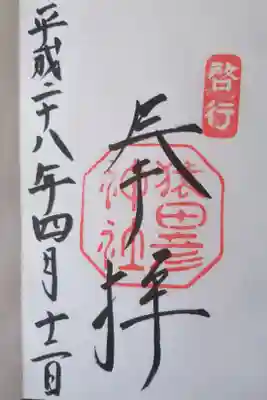 啓行
奉拝
猿田彦
神社
平成二十八年四月十一日